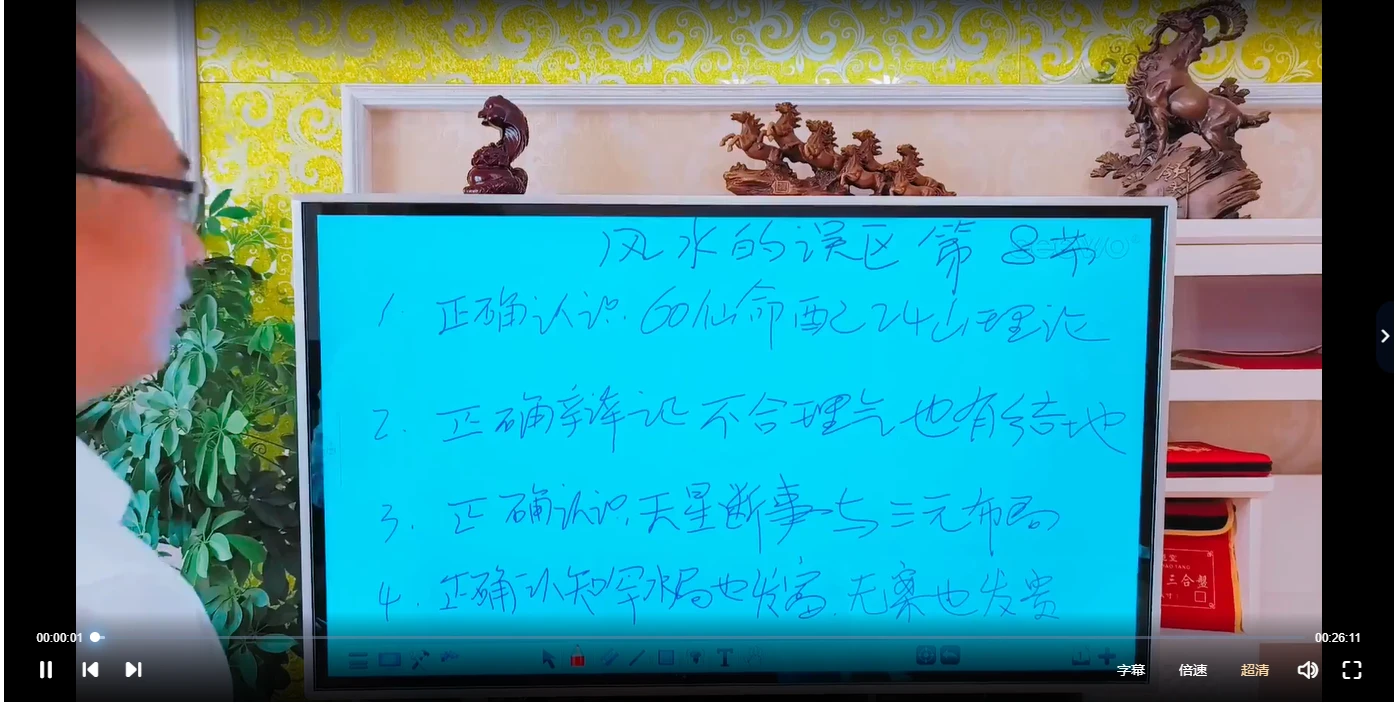 风水的误区第8节
1. 正确认识60仙命配24山理论
2. 正确辩论不合理气也有结地
3. 正确认识天星断事与三元布局
4. 正确认知旱水局也发富,无案也发贵
三合盤
00:00:01
00:26:11
字幕
倍速
超清